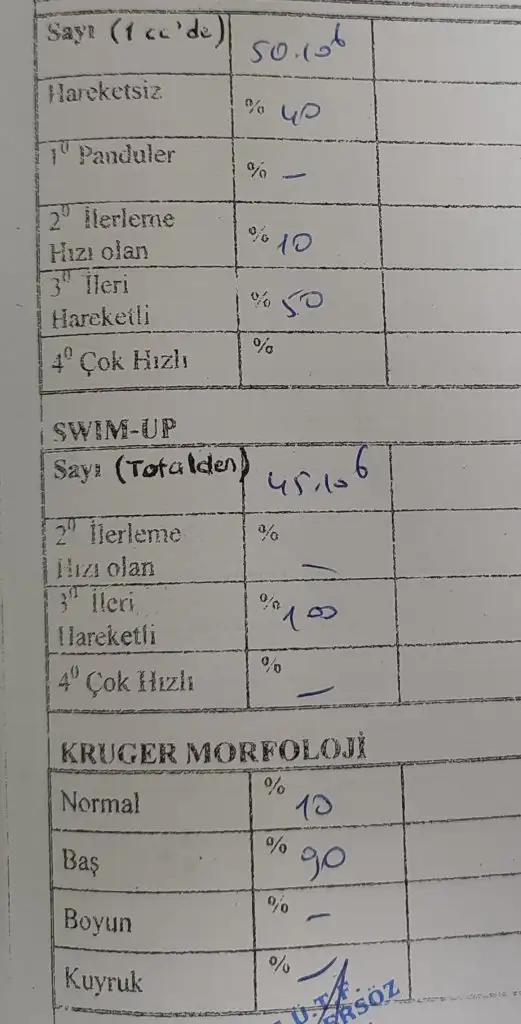 Sayı (1 cc'de) 50.10⁶
Hareketsiz % 40
1⁰ Panduler % —
2⁰ İlerleme
Hızı olan % 10
3⁰ İleri
Hareketli % 50
4⁰ Çok Hızlı %
SWIM-UP
Sayı (Totalden) 45.10⁶
2⁰ İlerleme %
Hızı olan —
3⁰ İleri %
Hareketli 100
4⁰ Çok Hızlı % —
KRUGER MORFOLOJİ
Normal % 10
Baş % 90
Boyun % —
Kuyruk % —
Ü.T.F.